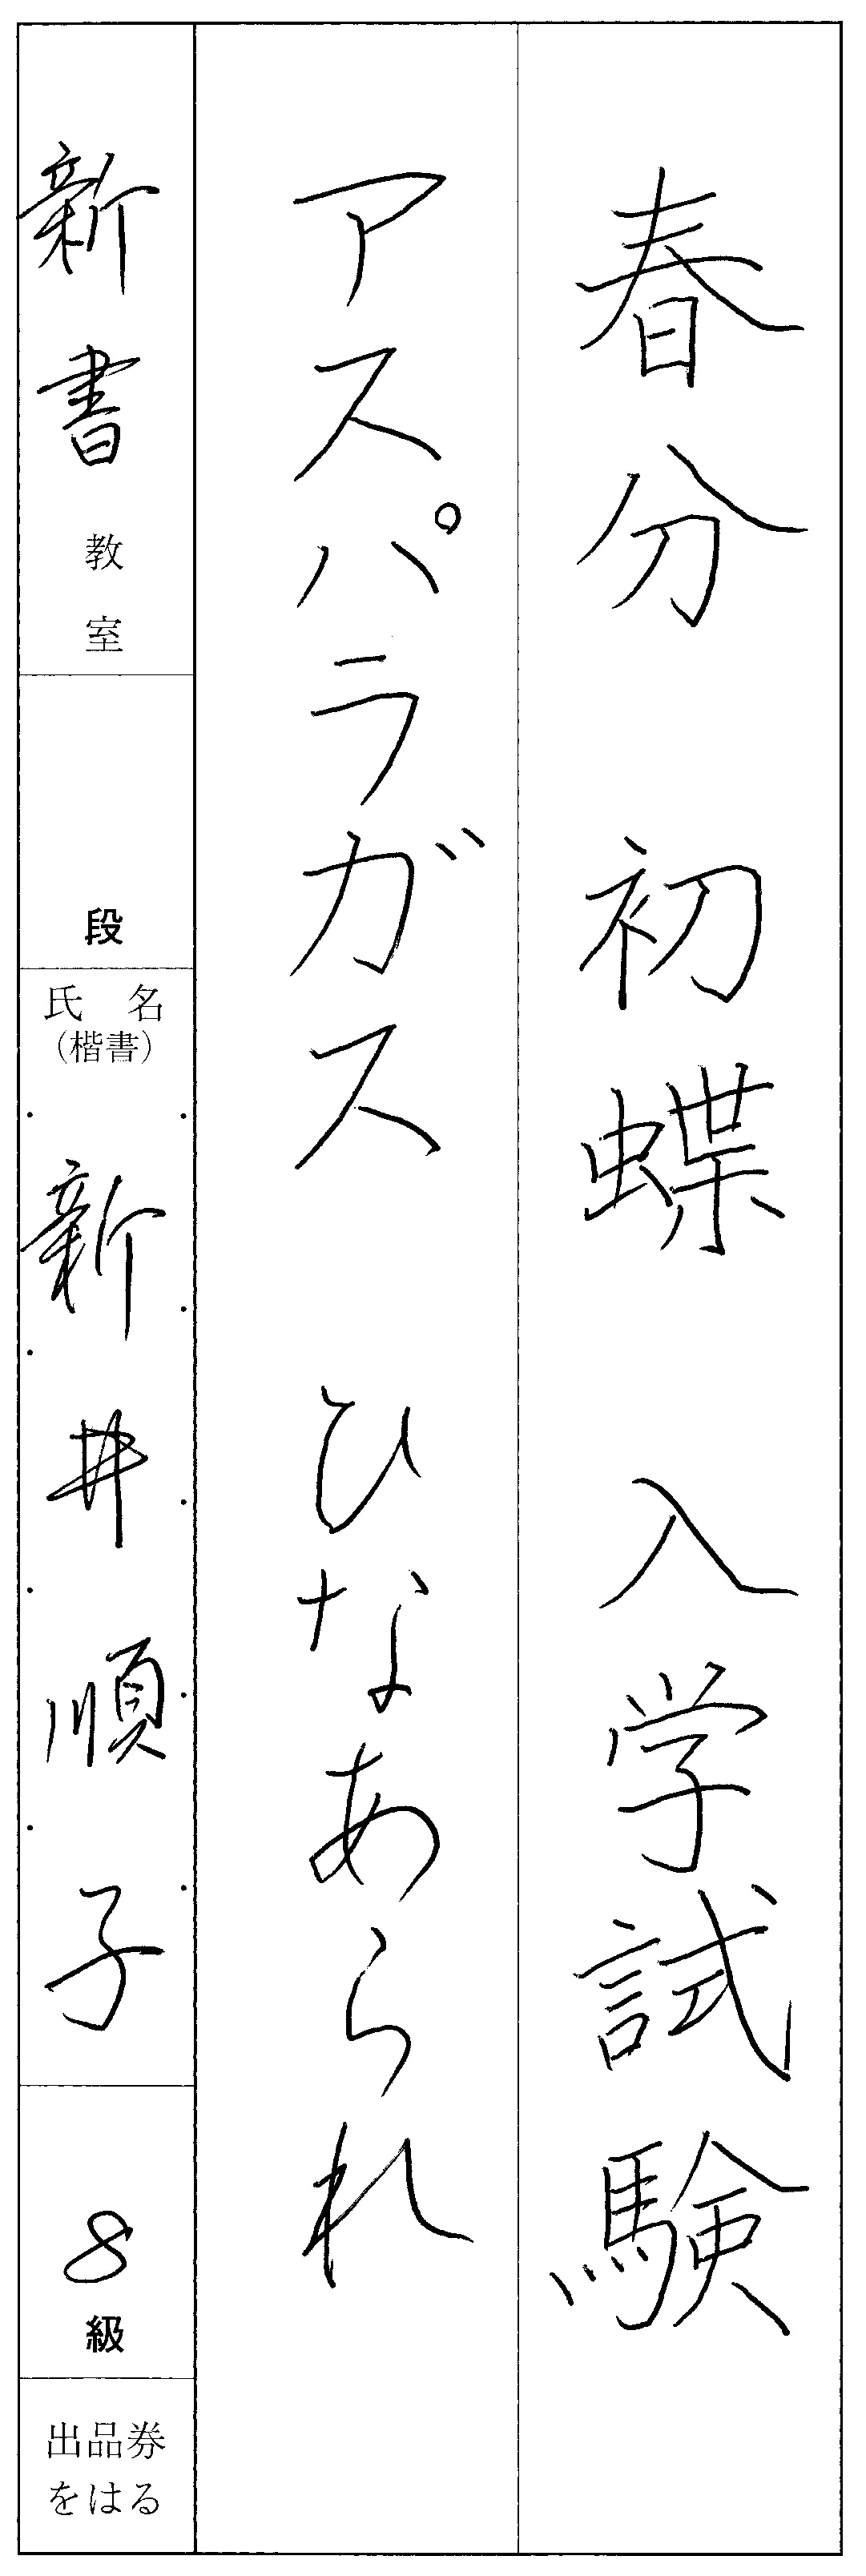 春分　初蝶　入学試験
アスパラガス　ひなあられ
新書教室
段
氏名
(楷書)
新井順子
8級
出品券
をはる